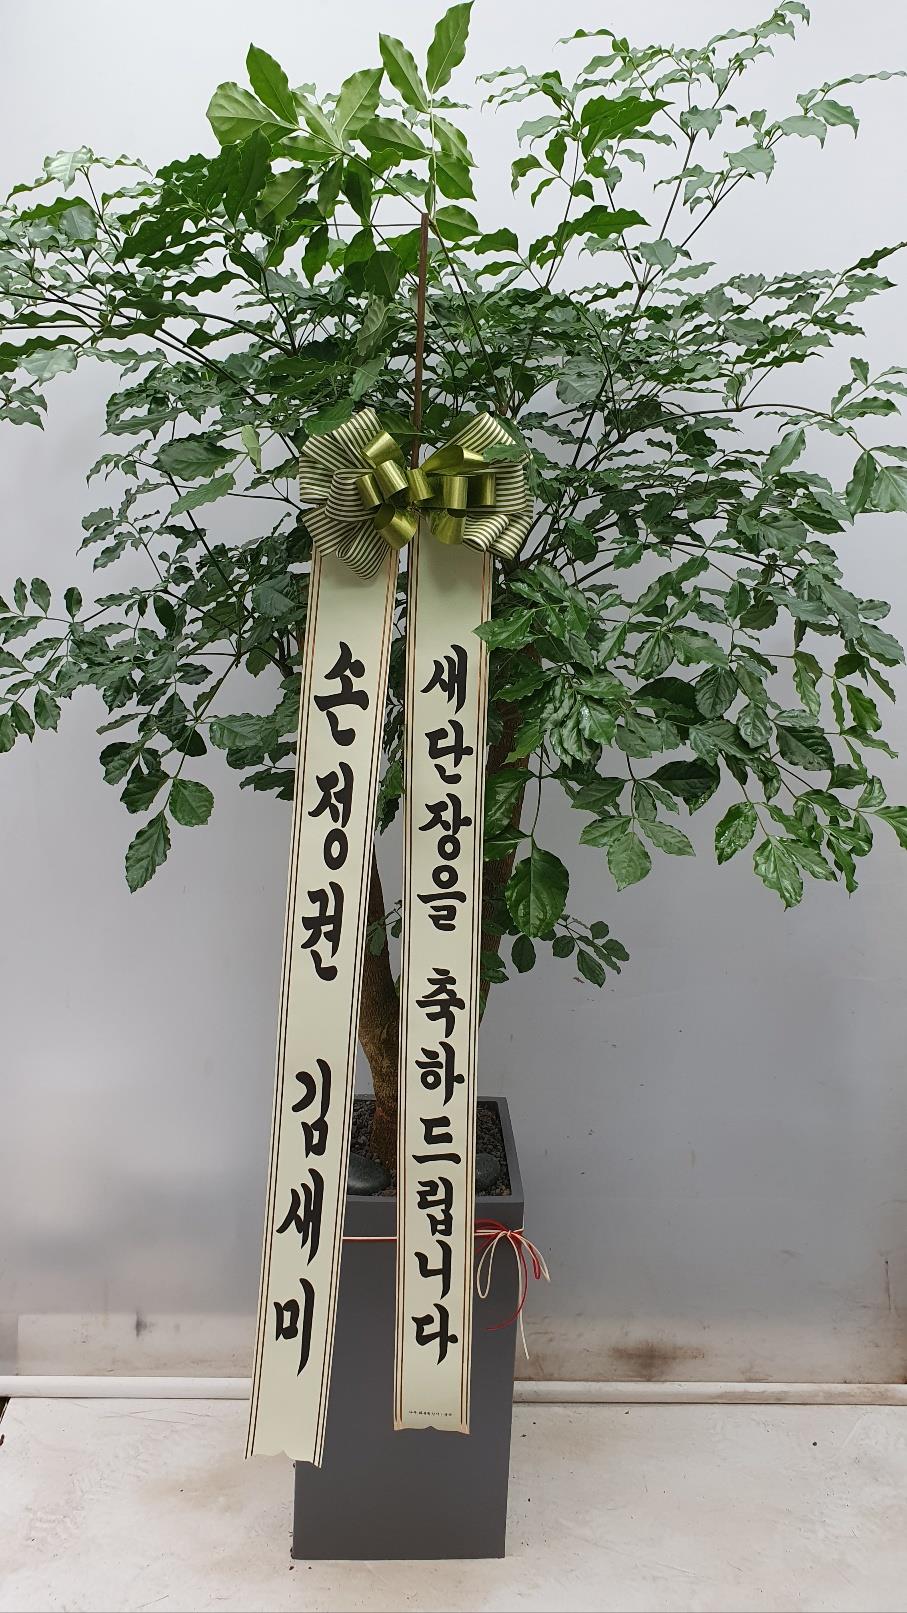 손정권 김새미
새단장을 축하드립니다